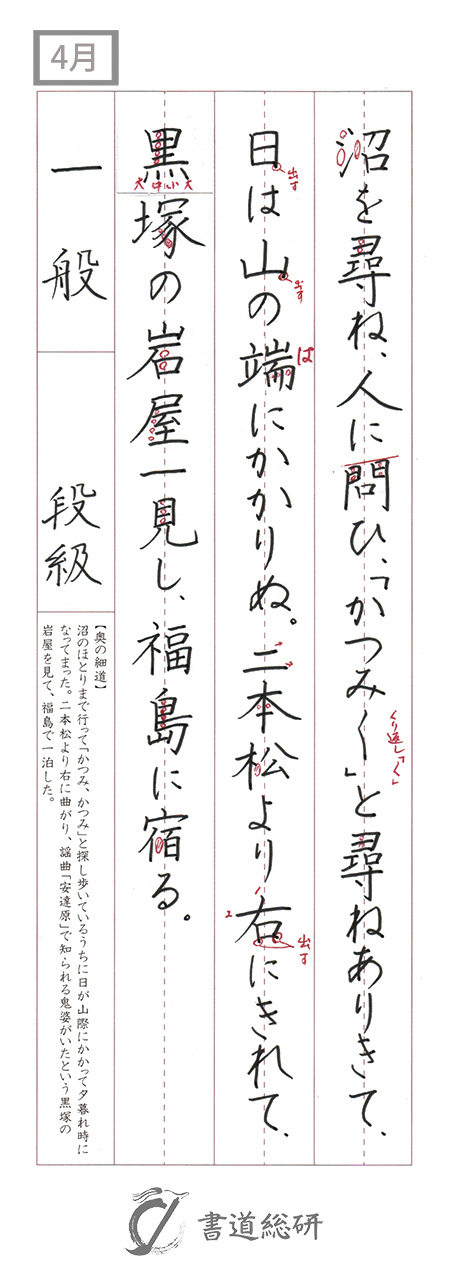 4月
沼を尋ね、人に問ひ、「かつみ〱」と尋ねありきて、
くり返し「く」
日は山の端にかかりぬ。二本松より右にきれて、
出す
出す
は
1
2
出す
黒塚の岩屋一見し、福島に宿る。
大中小大
一般
段級
【奥の細道】
沼のほとりまで行って「かつみ、かつみ」と探し歩いているうちに日が山際にかかって夕暮れ時に
なってまった。二本松より右に曲がり、謡曲「安達原」で知られる鬼婆がいたという黒塚の
岩屋を見て、福島で一泊した。
書道総研